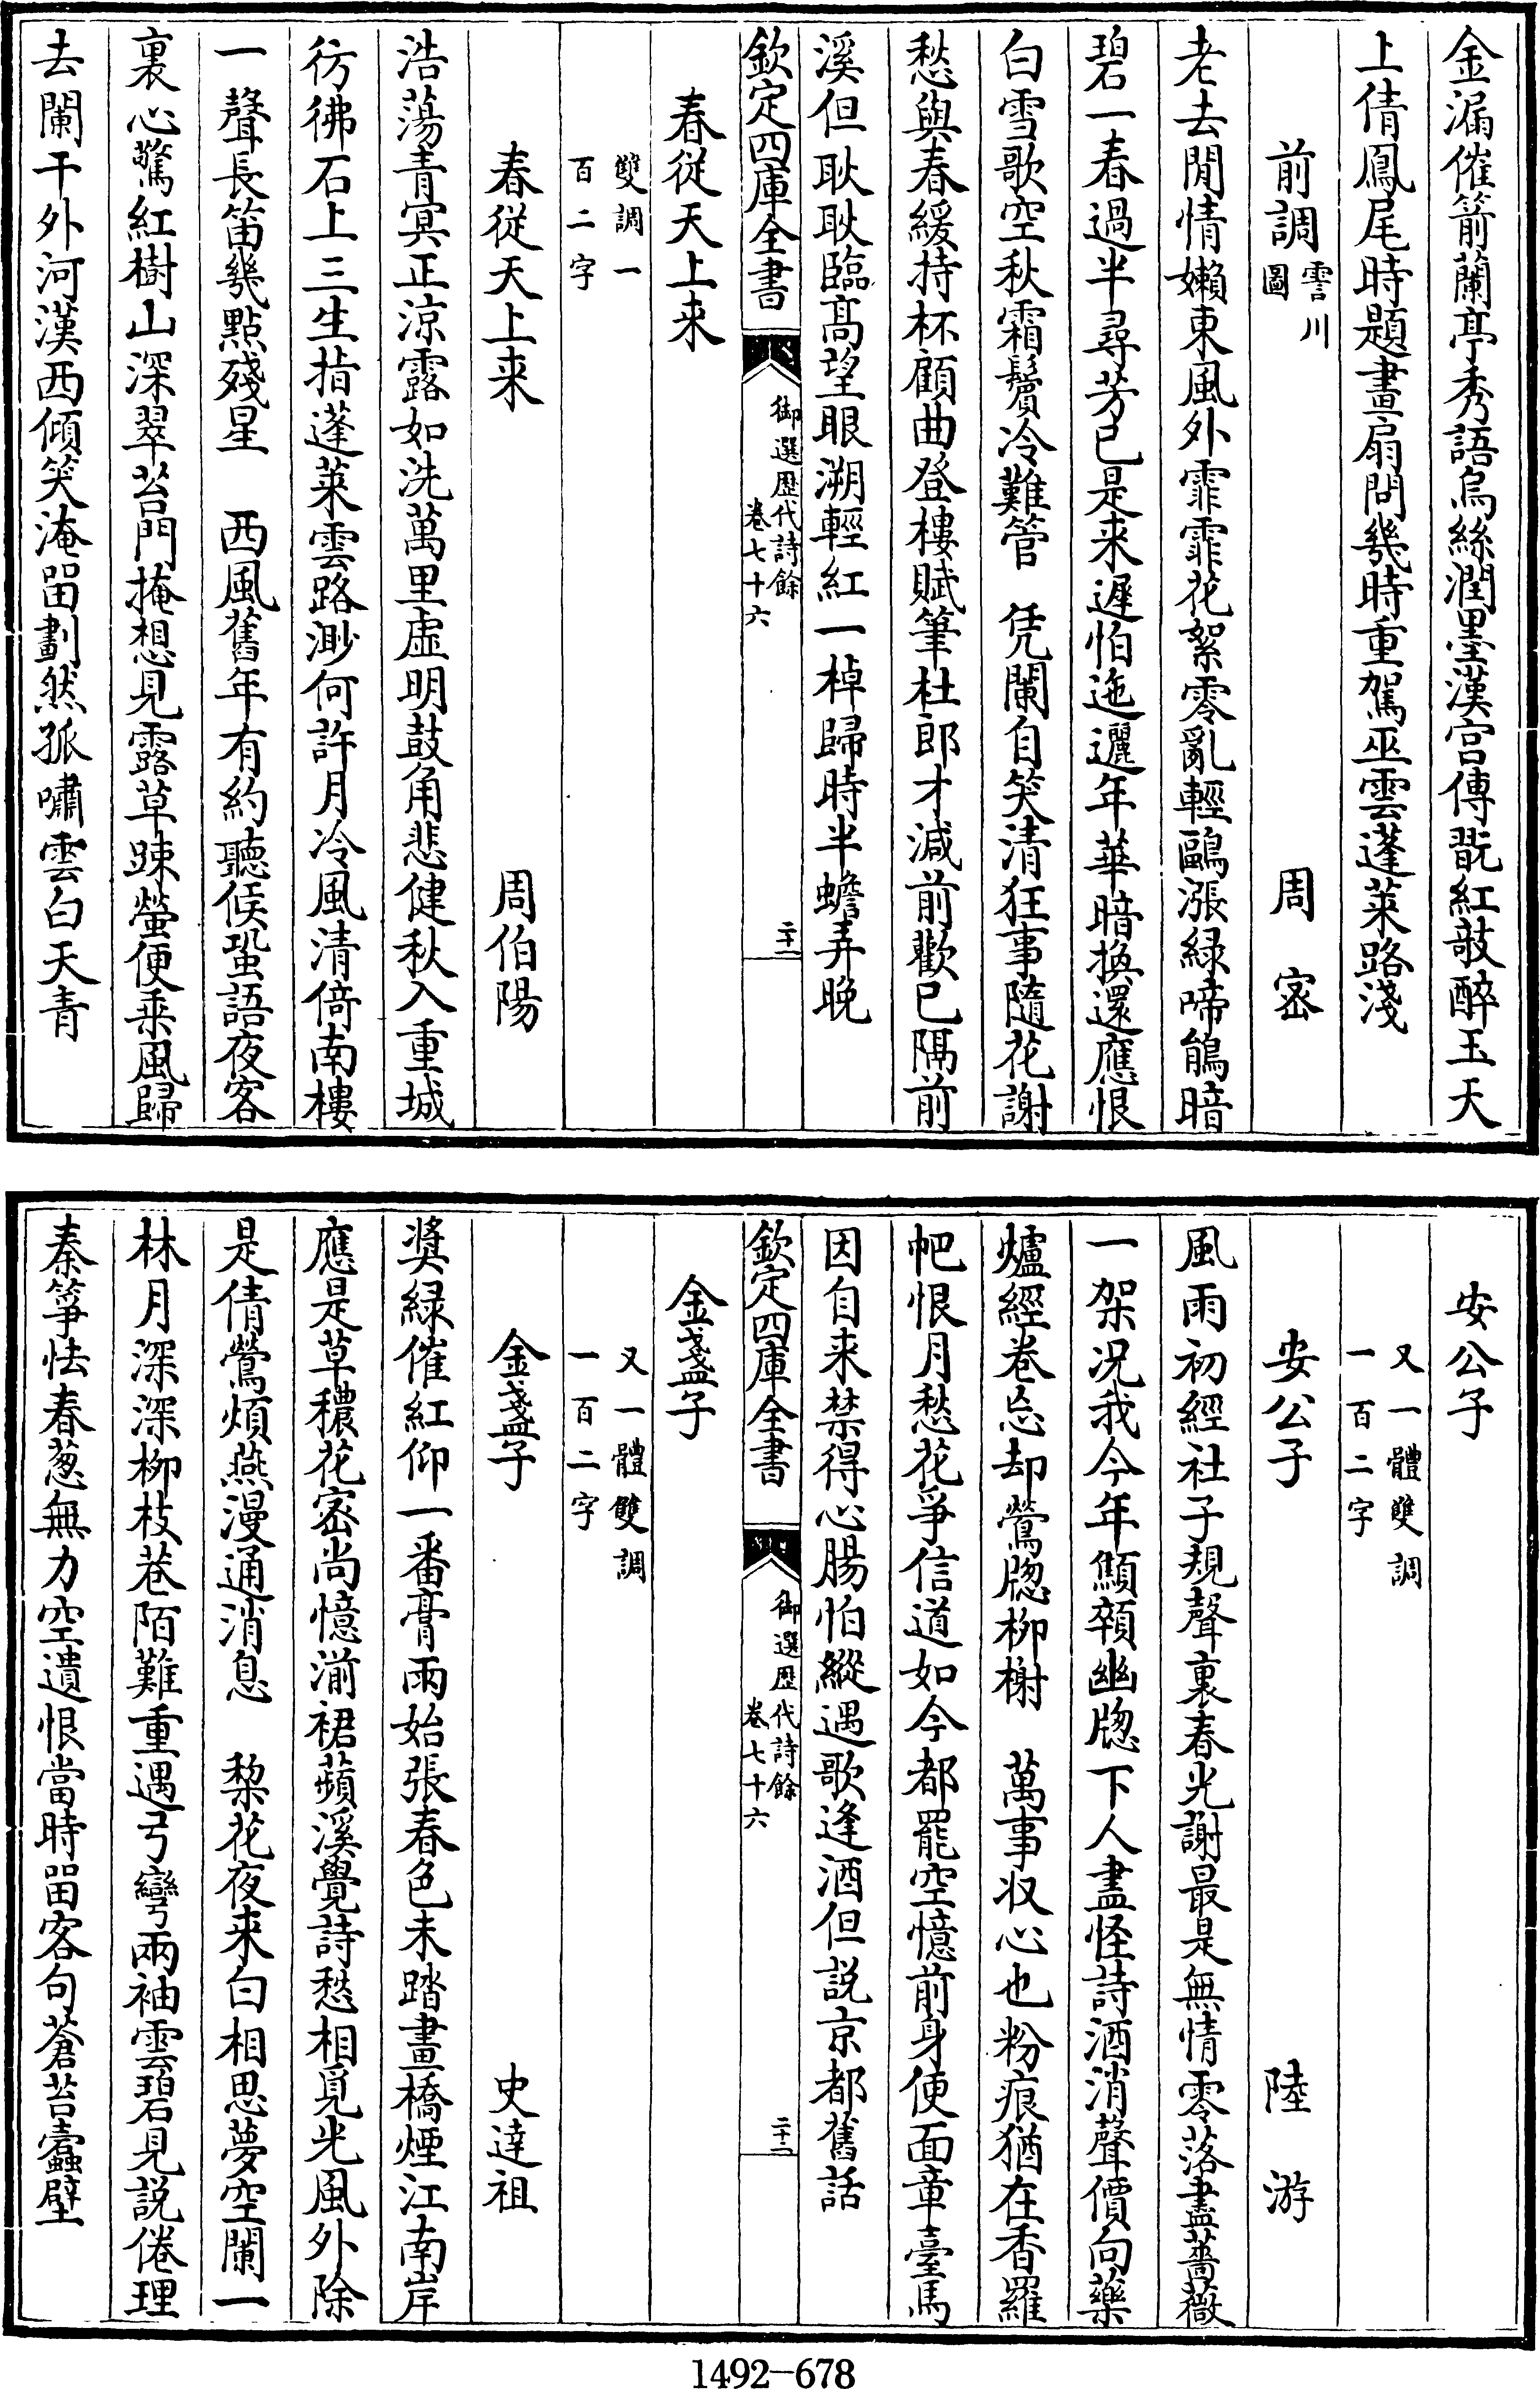 金漏催箭蘭亭秀語烏絲潤墨漢宮傳翫紅敧醉玉天
上倩鳳尾時題畫扇問幾時重駕巫雲蓬萊路淺
前調霅川圖 周密
老去閒情嬾東風外霏霏花絮零亂輕鷗漲緑啼鵑暗
碧一春過半尋芳已是来遲怕迤邐年華暗換還應恨
白雪歌空秋霜鬢冷難管 凭闌自笑清狂事隨花謝
愁與春緩持杯顧曲登樓賦筆杜郎才減前歡已隔前
溪但耿耿臨髙望眼溯輕紅一棹歸時半蟾弄晚
欽定四庫全書 御選歴代詩餘 卷七十六 二十一
春從天上来
雙調一
百二字
春從天上来 周伯陽
浩蕩青冥正涼露如洗萬里虛明鼓角悲健秋入重城
彷彿石上三生指蓬萊雲路渺何許月冷風清倚南樓
一聲長笛幾點殘星 西風舊年有約聽候蛩語夜客
裏心驚紅樹山深翠苔門掩想見露草踈螢便乘風歸
去闌干外河漢西傾笑淹留劃然孤嘯雲白天青
安公子
又一體雙調
一百二字
安公子 陸游
風雨初經社子規聲裏春光謝最是無情零落盡薔薇
一架况我今年顦顇幽牕下人盡怪詩酒消聲價向藥
爐經卷忘却鶯牕柳榭 萬事収心也粉痕猶在香羅
帊恨月愁花爭信道如今都罷空憶前身便面章臺馬
因自来禁得心腸怕縱遇歌逢酒但説京都舊話
欽定四庫全書 御選歴代詩餘 卷七十六 二十二
金盞子
又一體雙調
一百二字
金盞子 史達祖
奨緑催紅仰一番膏雨始張春色未踏畫橋煙江南岸
應是草穠花密尚憶湔裙蘋溪覺詩愁相覓光風外除
是倩鶯煩燕漫通消息 棃花夜来白相思夢空闌一
林月深深柳枝巷陌難重遇弓彎兩袖雲碧見説倦理
秦箏怯春蔥無力空遺恨當時留客句蒼苔蠧壁
1492-678